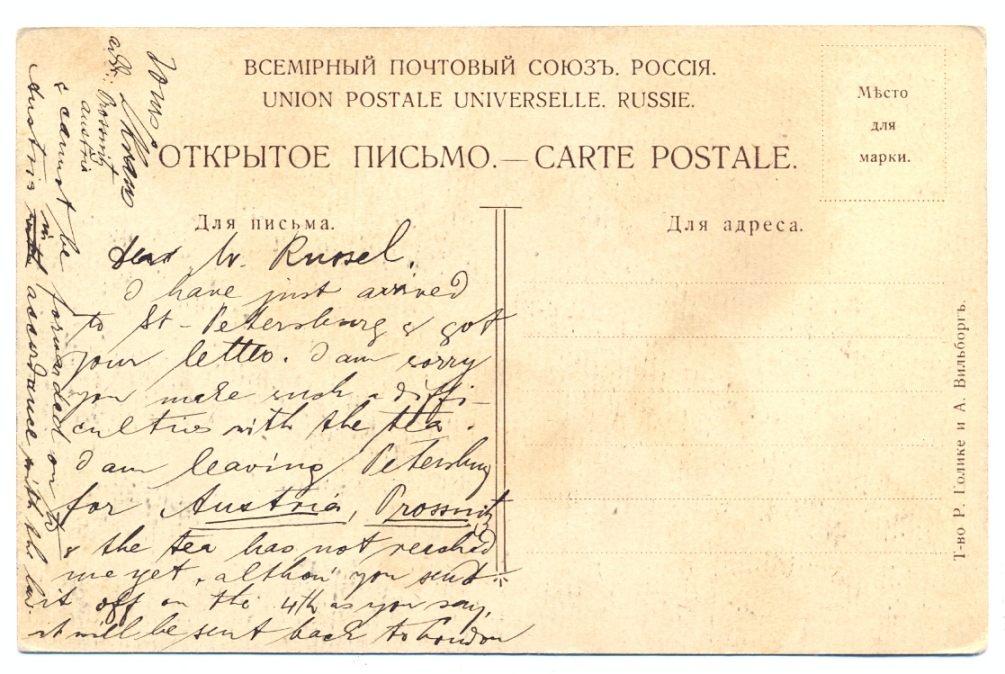 ВСЕМІРНЫЙ ПОЧТОВЫЙ СОЮЗЪ. РОССІЯ.
UNION POSTALE UNIVERSELLE. RUSSIE.
ОТКРЫТОЕ ПИСЬМО.—CARTE POSTALE.
Мѣсто
для
марки.
Для письма.
Для адреса.
Dear Mr. Russel,
I have just arrived
to St-Petersburg & got
your letter. I am sorry
you make such a diffi-
culties with the tea.
I am leaving Petersburg
for Austria, Prossnitz
& the tea has not reached
me yet, althou' you sent
it off on the 4th as you say,
it will be sent back to London
& cannot be forwarded on to
Austria in accordance with the law.
Yours
addr. Prossnitz
Austria
Т-во Р. Голике и А. Вильборгъ.